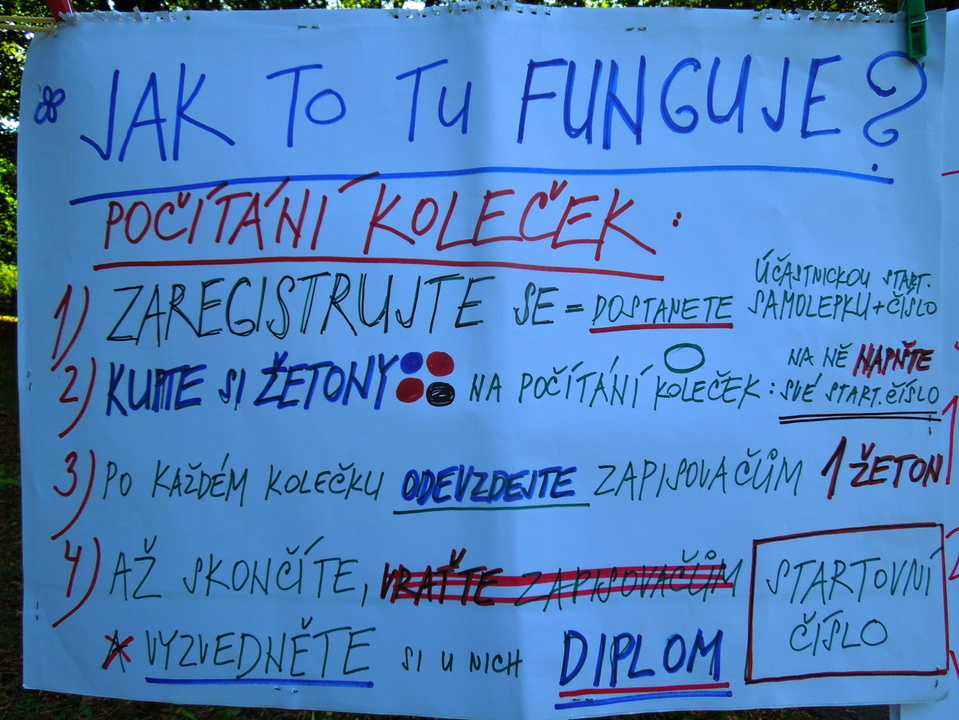 JAK TO TU FUNGUJE?
POČÍTÁNÍ KOLEČEK:
1) ZAREGISTRUJTE SE = DOSTANETE ÚČASTNICKOU START. SAMOLEPKU + ČÍSLO
2) KUPTE SI ŽETONY NA POČÍTÁNÍ KOLEČEK: NA NĚ NAPIŠTE SVÉ START. ČÍSLO
3) PO KAŽDÉM KOLEČKU ODEVZDEJTE ZAPISOVAČŮM 1 ŽETON
4) AŽ SKONČÍTE, VRAŤTE ZAPISOVAČŮM STARTOVNÍ ČÍSLO
A VYZVEDNĚTE SI U NICH DIPLOM